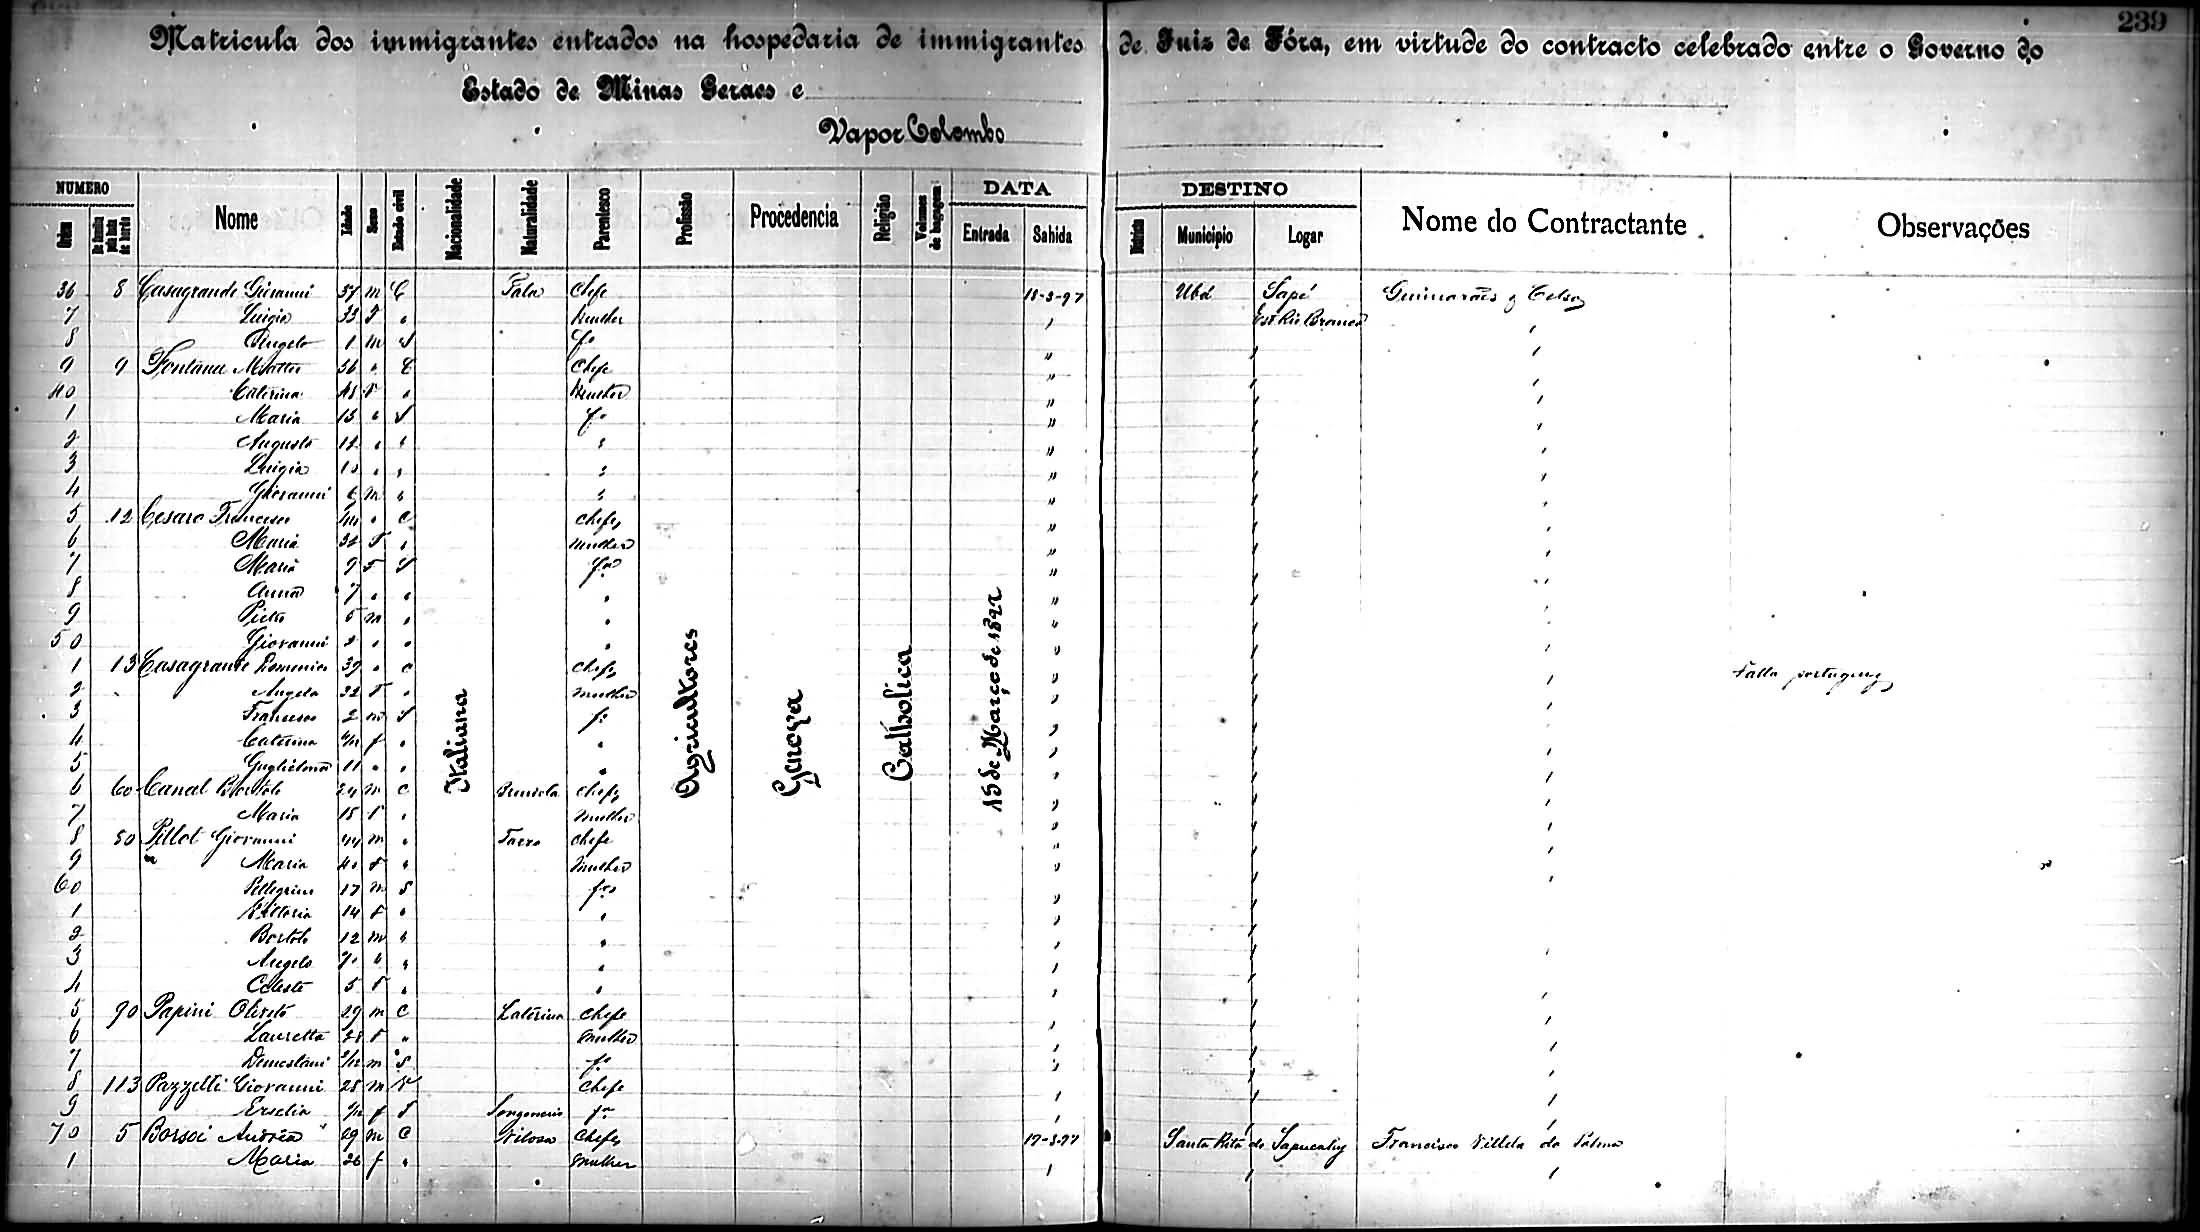 239
Matricula dos immigrantes entrados na hospedaria de immigrantes de Juiz de Fóra, em virtude do contracto celebrado entre o Governo do
Estado de Minas Geraes e
Vapor Colombo
NUMERO DATA DESTINO
Ordem De familia pela lista de bordo Nome Idade Sexo Estado civil Nacionalidade Naturalidade Parentesco Profissão Procedencia Religião Volumes de bagagem Entrada Sahida Districto Municipio Logar Nome do Contractante Observações
Italiana Agricultores Genova Catholica 15 de Março de 1897
36 8 Casagrande Giovanni 37 m C Chefe 18-3-97 Ubá Sapé Guimarães & Celso
7 Luigia 33 F " Mulher " Est Rio Branco "
8 Angelo 1 m S fo " " "
9 9 Fontana Matteo 56 " C Chefe " " "
40 Caterina 48 F " Mulher " " "
1 Maria 15 " S fa " " "
2 Augusta 12 " " " " " "
3 Luigia 10 " " " " " "
4 Giovanni 6 m " " " " "
5 12 Cesaro Francesco " C Chefe " " "
6 Maria 32 F " Mulher " " "
7 Maria 9 F S fa " " "
8 Anna 7 " " " " " "
9 Pietro 5 m " " " " "
50 Giovanni 2 " " " " " "
1 13 Casagrande Domenico 39 " C Chefe " " " Falla portuguez
2 Angela 32 F " Mulher " " "
3 Francesco 2 m S fo " " "
4 Caterina f " " " " "
5 Guglielma 11 " " " " " "
6 60 Canal Bortolo 24 m C Chefe " " "
7 Maria 18 F " Mulher " " "
8 80 Pillot Giovanni 44 m " Tarzo Chefe " " "
9 " Maria 40 F " Mulher " " "
60 Pellegrino 17 m S fo " "
1 Vittoria 14 F " " " "
2 Bortolo 12 m " " " "
3 Angelo " " " " " "
4 Celeste 5 F " " " "
5 90 Papini Olinto 29 m C Laterina Chefe " " "
6 Lauretta 28 F " Mulher " " "
7 m S fo " " "
8 113 Pazzelli Giovanni 28 m V Chefe " " "
9 Erselia f S fa " " "
70 5 Borsoi Andrea 29 m C Chefe 17-3-97 Santa Rita do Sapucahy Francisco Villela da Palma
1 Maria 26 f " Mulher " " "